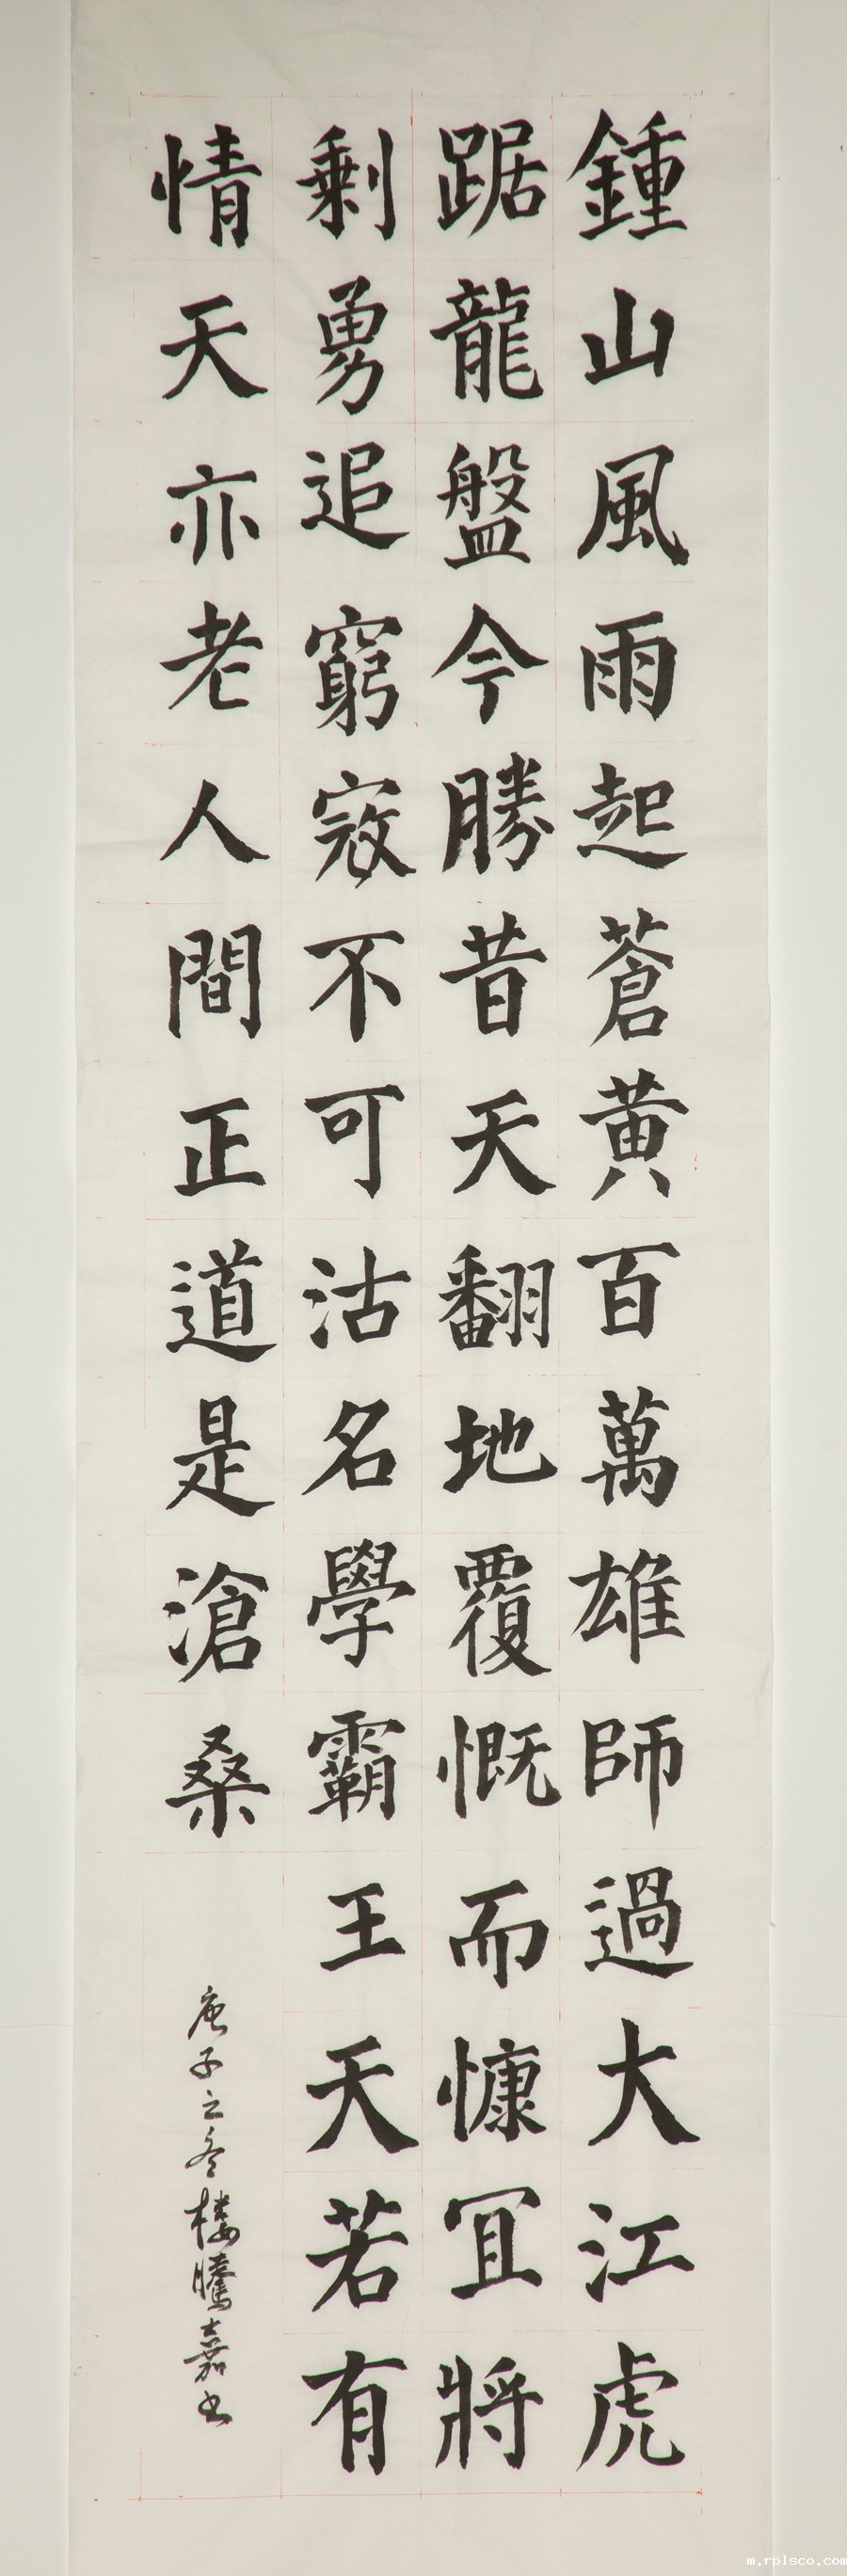 鍾山風雨起蒼黄百萬雄師過大江虎
踞龍盤今勝昔天翻地覆慨而慷宜將
剩勇追窮寇不可沽名學霸王天若有
情天亦老人間正道是滄桑
庚子之冬樓騰嘉书
m.rplsco.com